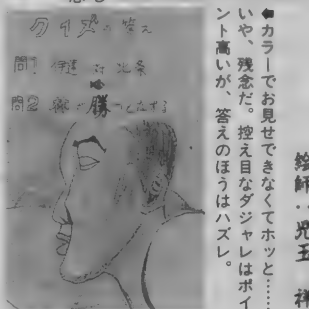 クイズの答え
問1 伊達 対 北条
問2
勝
⬅カラーでお見せできなくてホッと……、
いや、残念だ。控え目なダジャレはポイ
ント高いが、答えのほうはハズレ。
絵師：児玉